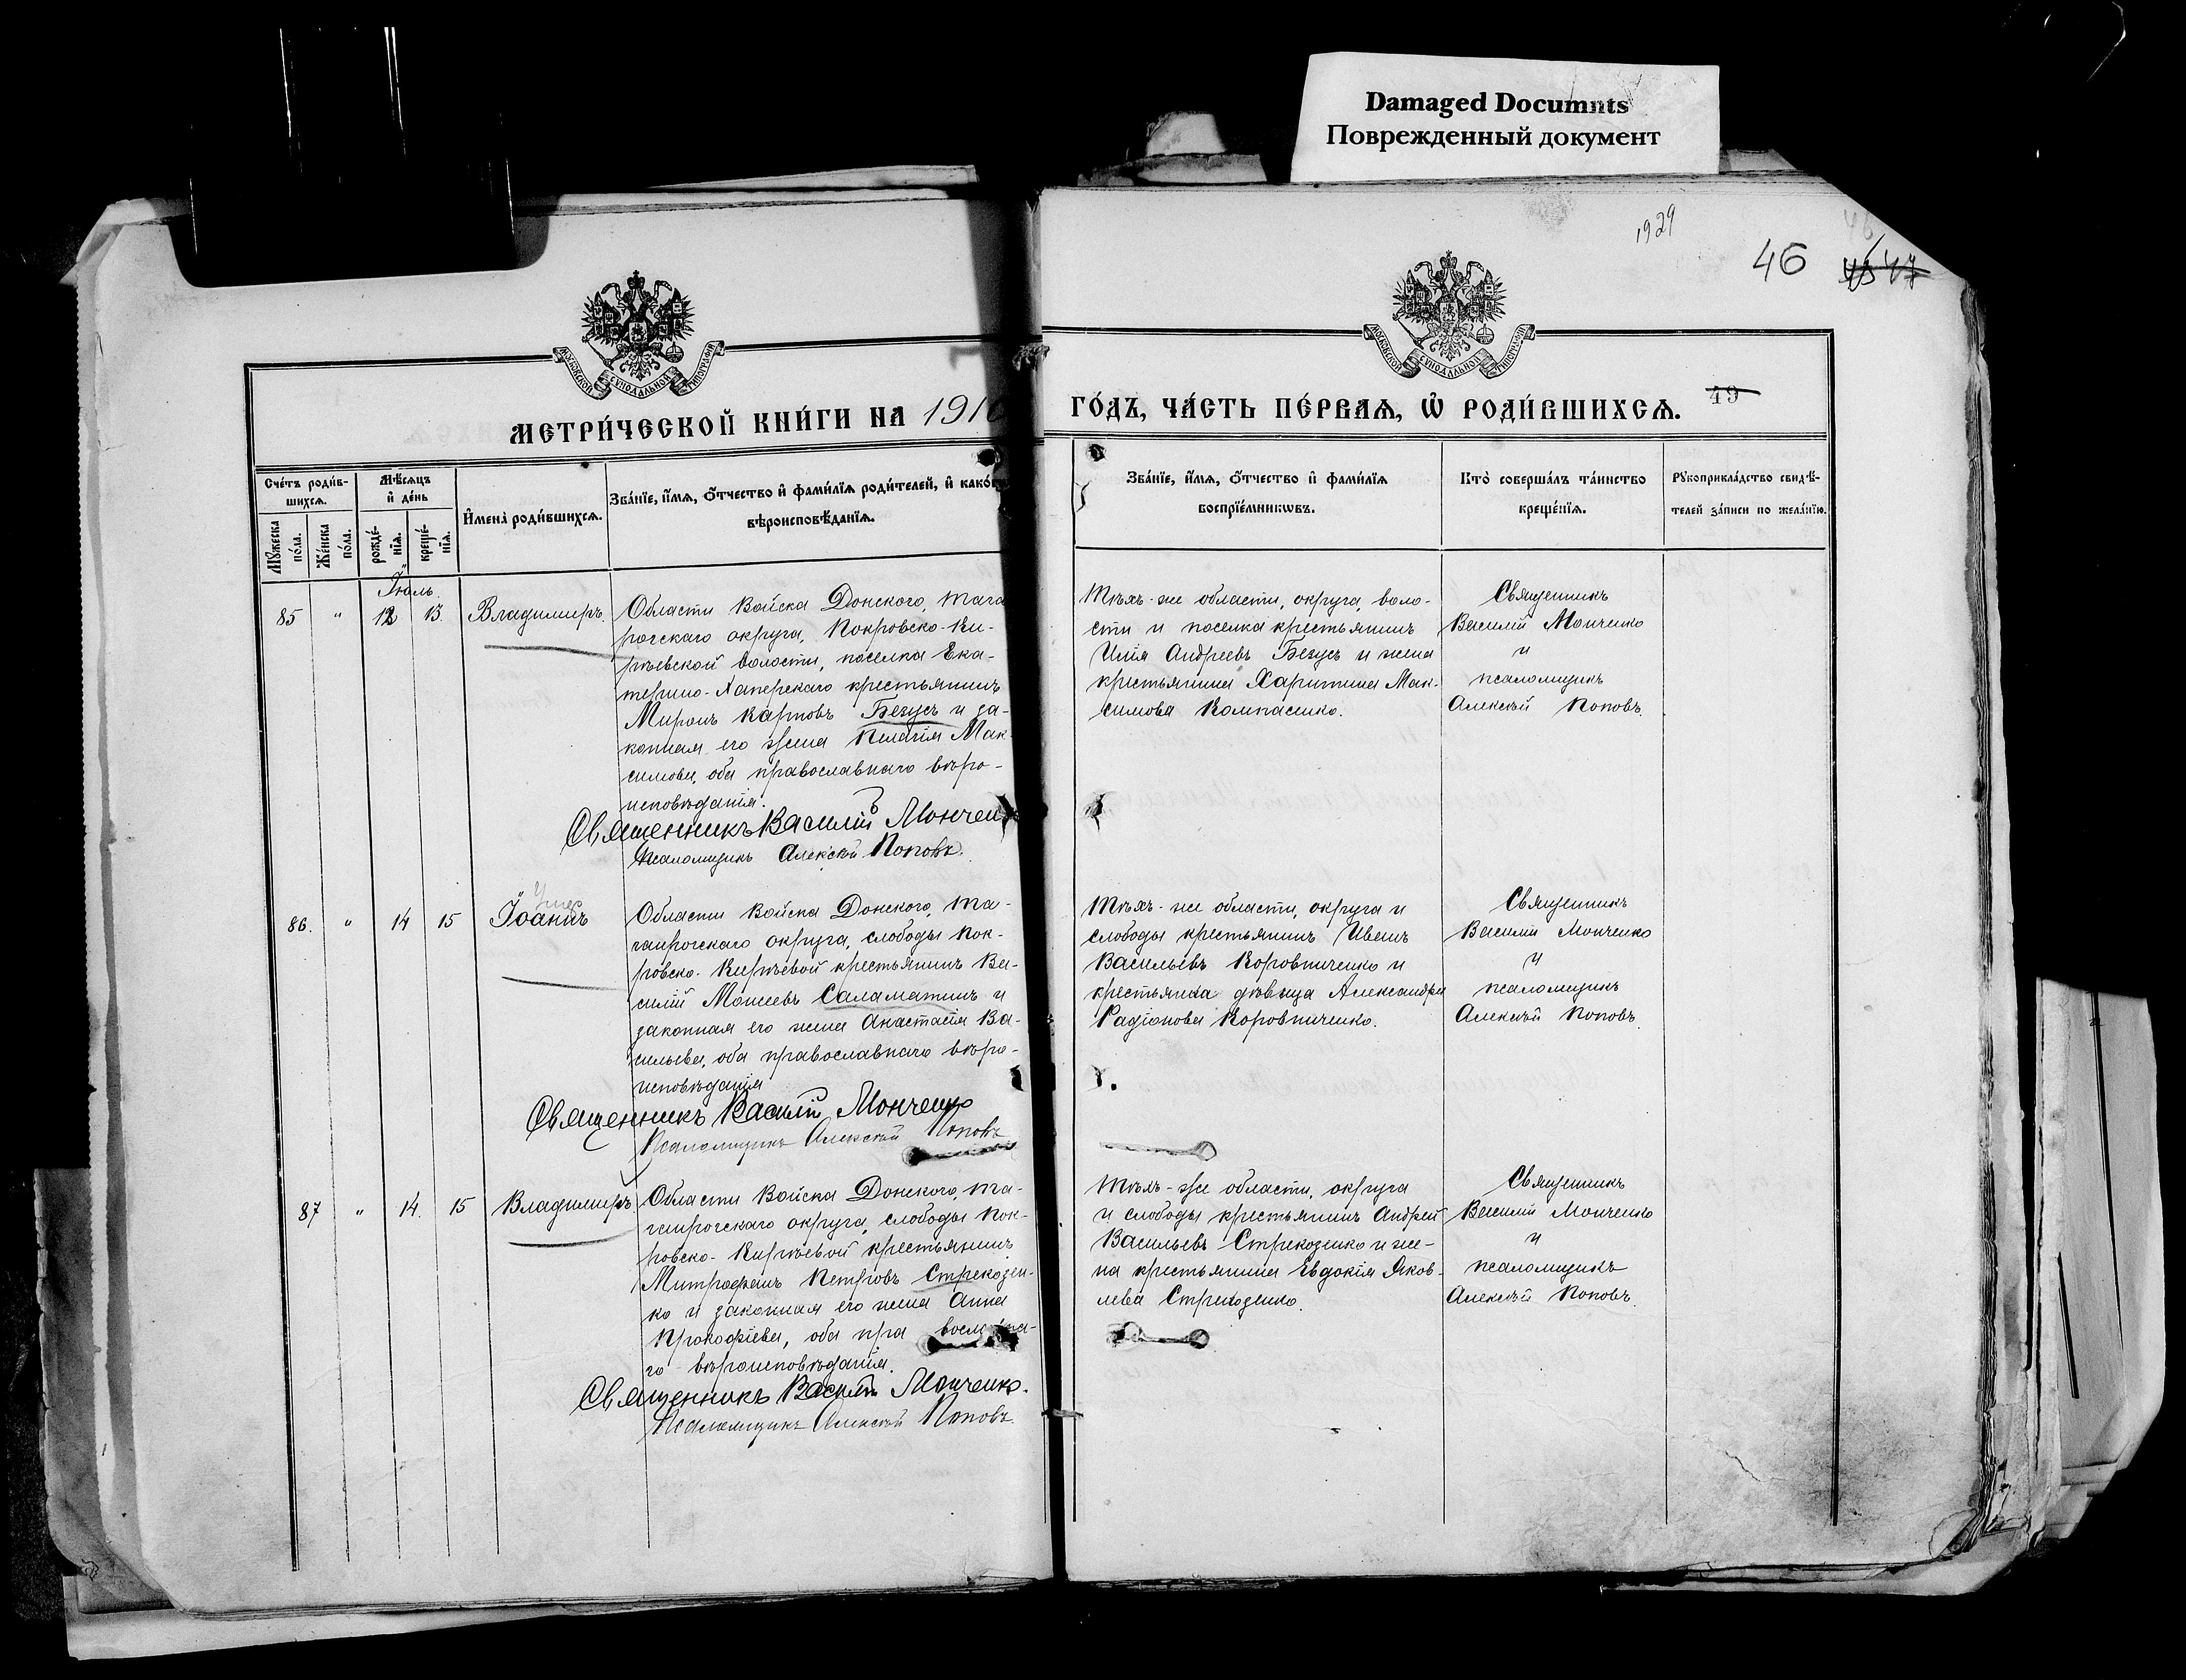 Damaged Documnts
Поврежденный документ
1929
46
49
МОСКОВСКОЙ СѴНОДАЛЬНОЙ ТИПОГРАФІИ
МОСКОВСКОЙ СѴНОДАЛЬНОЙ ТИПОГРАФІИ
МЕТРИ́ЧЕСКОЙ КНИ́ГИ НА 1910
ГО́ДЪ, ЧА́СТЬ ПЕ́РВАѦ, Ѽ РОДИ́ВШИХСѦ.
Сче́тъ роди́в-
шихсѧ.
Мꙋжеска
по́ла.
Же́нска
по́ла.
Мѣ́сѧцъ
и҆ де́нь
рожде́-
нїѧ.
креще́-
нїѧ.
И҆мена̀ роди́вшихсѧ.
Зва́нїе, и҆́мѧ, ѻ҆́тчество и҆ фами́лїѧ роди́телей, и҆ како́гѡ
вѣроисповѣ́данїѧ.
Зва́нїе, и҆́мѧ, ѻ҆́тчество и҆ фами́лїѧ
воспрїе́мникѡвъ.
Кто̀ соверша́лъ та́инство
креще́нїѧ.
Рꙋкоприкла́дство свидѣ́-
телей за́писи по жела́нїю.
Іюль.
85 " 12 13. Владимиръ.
Области Войска Донского, Тага
рогскаго округа, Покровско-Ки-
рѣевской волости, поселка Ека-
терино-Хаперскаго крестьянинъ
Миронъ Карповъ Безусъ и за-
конная его жена Пелагія Мак-
симова, оба православнаго вѣро-
исповѣданія.
Священникъ Василій Мончен
Псаломщикъ Алексѣй Поповъ.
Тѣхъ-же области, округа, воло-
сти и поселка крестьянинъ
Илія Андреевъ Безусъ и жена
крестьянина Харитина Мак-
симова Компасенко.
Священникъ
Василій Мончено
и
псаломщикъ
Алексѣй Поповъ.
86. " 14 15 Іоаннъ
Умер
Области Войска Донского, Та-
ганрогскаго округа, слободы Пок-
ровско-Кирѣевой крестьянинъ Ва-
силій Моисеевъ Саламатинъ и
законная его жена Анастасія Ва-
сильева, оба православнаго вѣро-
исповѣданія
Священникъ Василій Монченко
Псаломщикъ Алексѣй Поповъ
Тѣхъ-же области, округа и
слободы крестьянинъ Иванъ
Васильевъ Коровниченко и
крестьянка дѣвица Александра
Радіонова Коровниченко.
Священникъ
Василій Монченко
и
псаломщикъ
Алексѣй Поповъ.
87 " 14. 15 Владимиръ.
Области Войска Донского, Та-
ганрогскаго округа, слободы Пок-
ровско-Кирѣевой крестьянинъ
Митрофанъ Петровъ Стрекозен-
ко и законная его жена Анна
Прокофіева, оба пра вославна-
го вѣроисповѣданія.
Священникъ Василій Монченко.
Псаломщикъ Алексѣй Поповъ.
Тѣхъ-же области, округа
и слободы крестьянинъ Андрей
Васильевъ Стрекозенко и же-
на крестьянина Евдокія Яков-
лева Стрекозенко.
Священникъ
Василій Монченко
и
псаломщикъ
Алексѣй Поповъ.